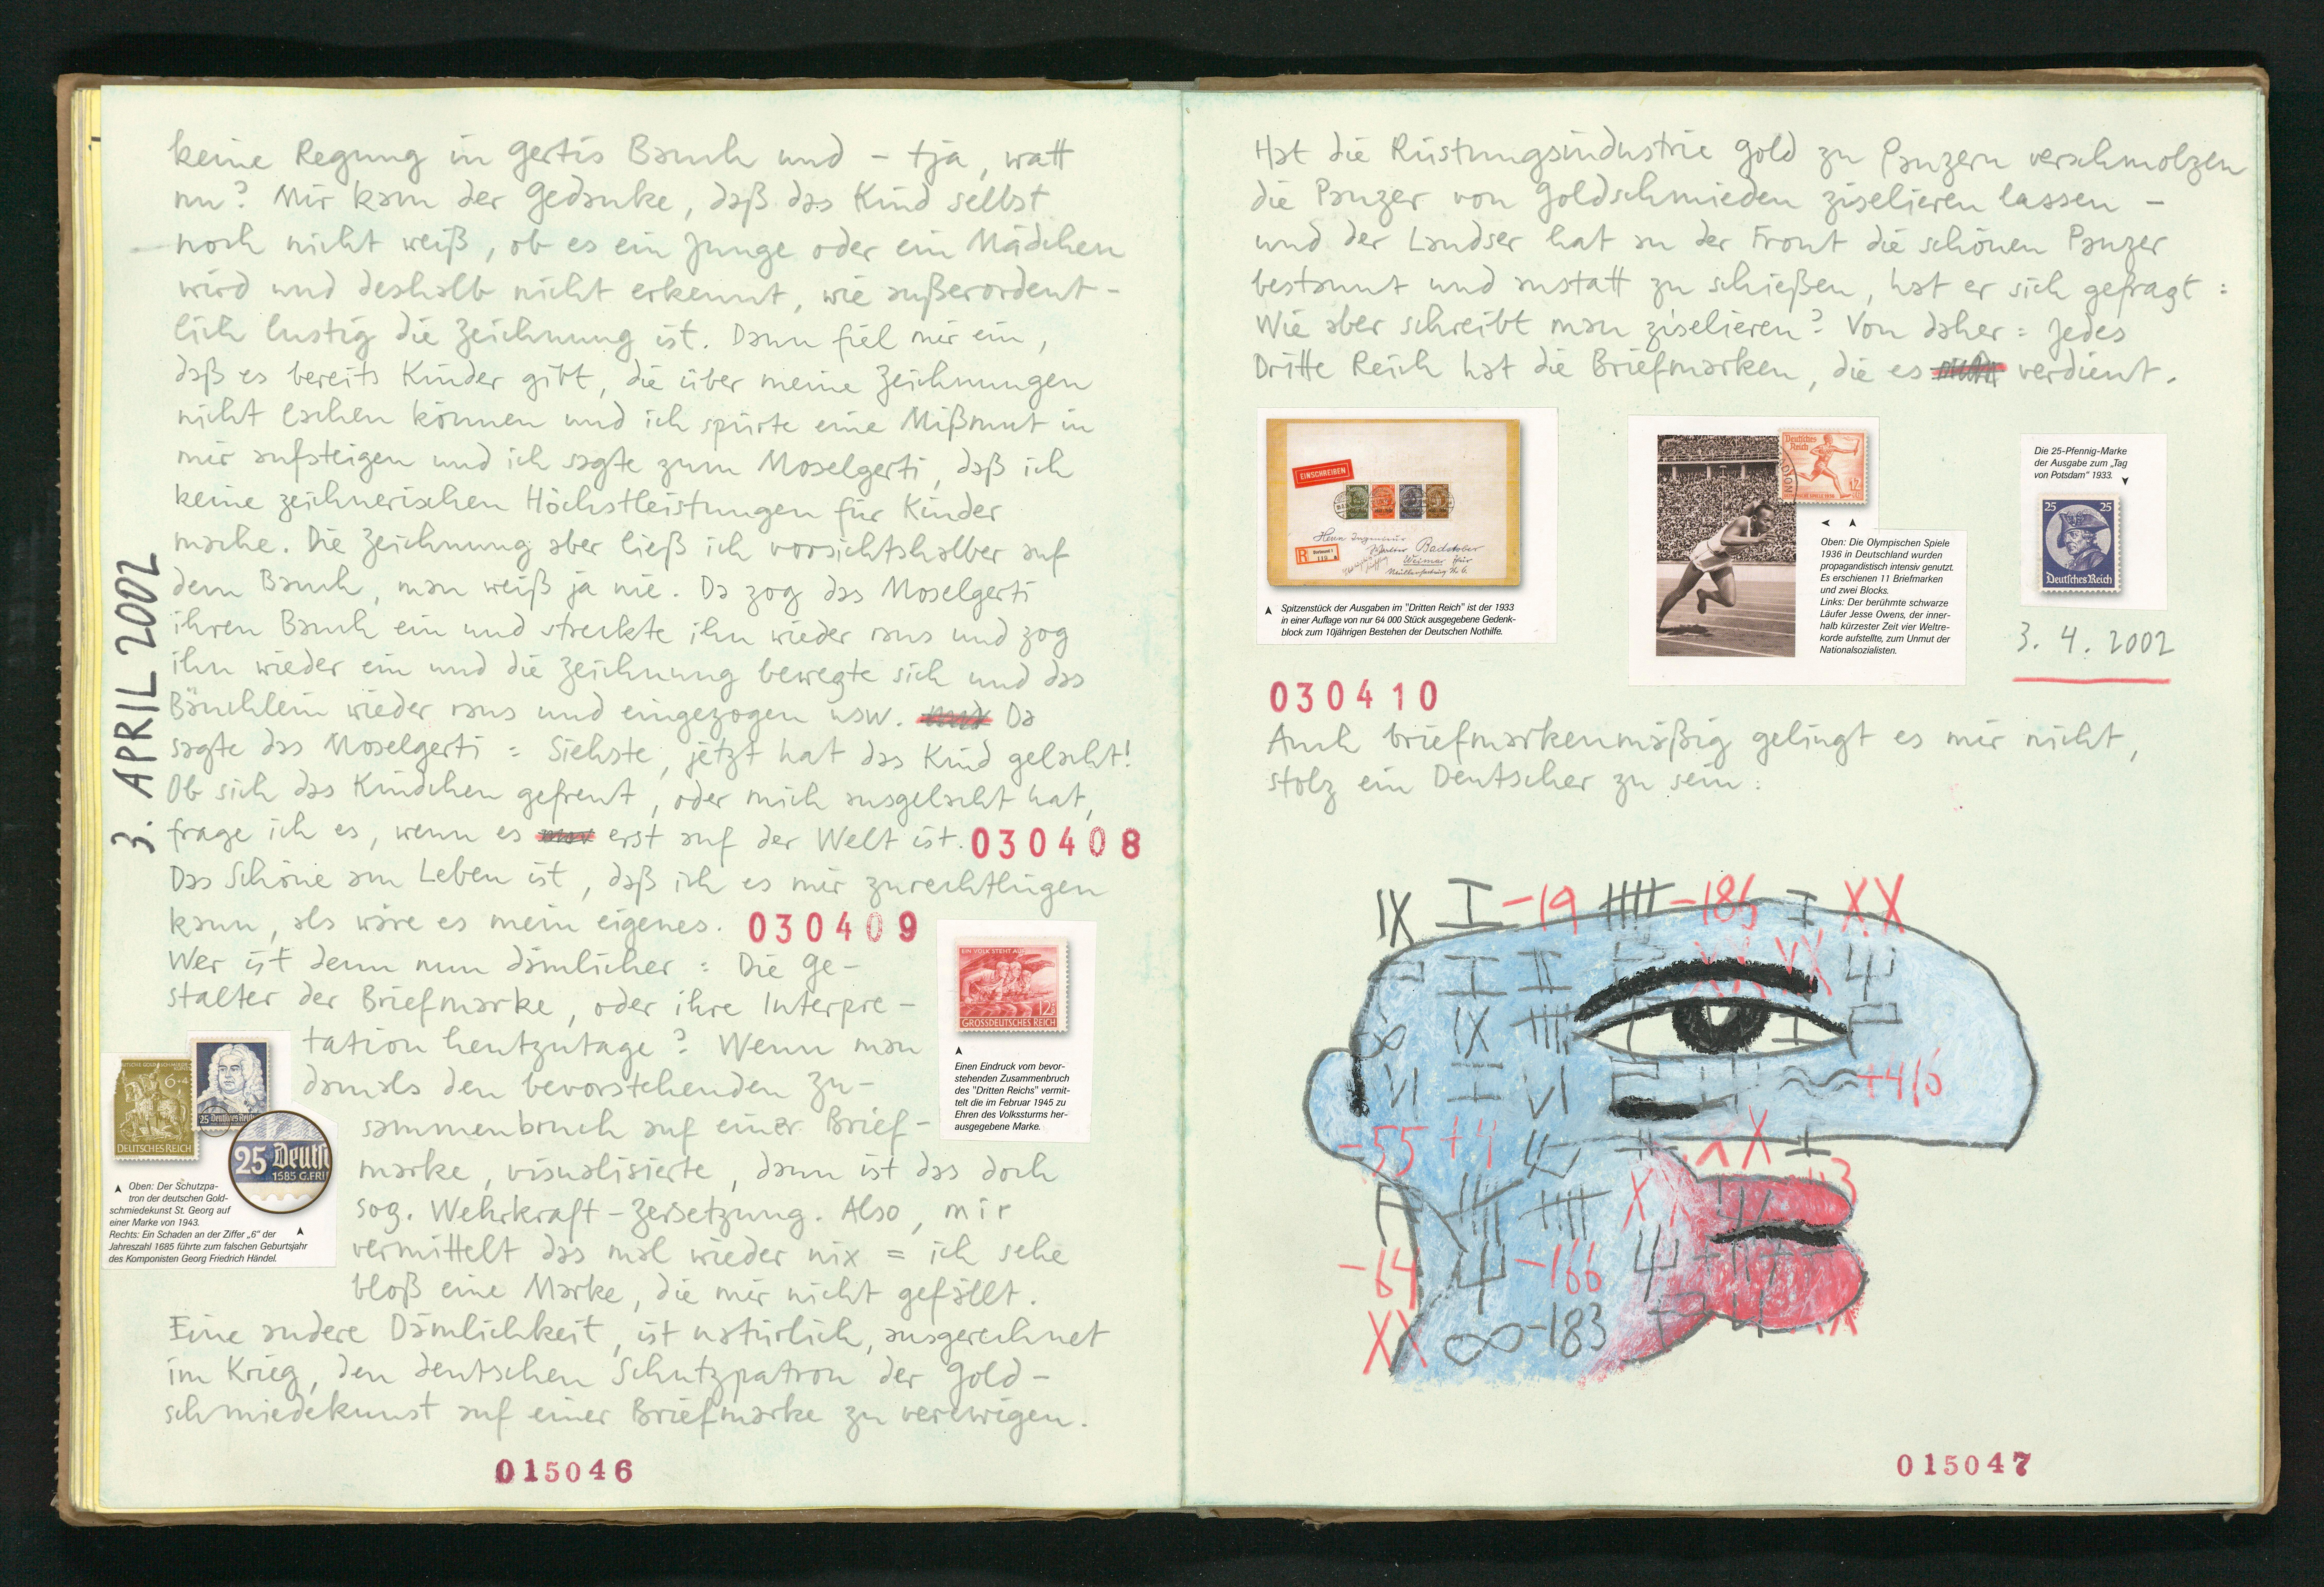 3. APRIL 2002
keine Regung in Gertis Bauch und – tja, watt
nu? Mir kam der Gedanke, daß das Kind selbst
noch nicht weiß, ob es ein Junge oder ein Mädchen
wird und deshalb nicht erkennt, wie außerordent-
lich lustig die Zeichnung ist. Dann fiel mir ein,
daß es bereits Kinder gibt, die über meine Zeichnungen
nicht lachen können und ich spürte eine Mißmut in
mir aufsteigen und ich sagte zum Moselgerti, daß ich
keine zeichnerischen Höchstleistungen für Kinder
mache. Die Zeichnung aber ließ ich vorsichtshalber auf
dem Bauch, man weiß ja nie. Da zog das Moselgerti
ihren Bauch ein und streckte ihn wieder raus und zog
ihn wieder ein und die Zeichnung bewegte sich und das
Bäuchlein wieder raus und eingezogen usw. Da
sagte das Moselgerti = Siehste, jetzt hat das Kind gelacht!
Ob sich das Kindchen gefreut, oder mich ausgelacht hat,
frage ich es, wenn es erst auf der Welt ist. 030408
Das Schöne am Leben ist, daß ich es mir zurechtlügen
kann, als wäre es mein eigenes. 030409
Wer ist denn nun dämlicher = Die Ge-
stalter der Briefmarke, oder ihre Interpre-
tation heutzutage? Wenn man
damals den bevorstehenden Zu-
sammenbruch auf einer Brief-
marke, visualisierte, dann ist das doch
sog. Wehrkraft-Zersetzung. Also, mir
vermittelt das mal wieder nix = ich sehe
bloß eine Marke, die mir nicht gefällt.
Eine andere Dämlichkeit, ist natürlich, ausgerechnet
im Krieg, den deutschen Schutzpatron der Gold-
schmiedekunst auf einer Briefmarke zu verewigen.
EIN VOLK STEHT AUF
12
GROSSDEUTSCHES REICH
Einen Eindruck vom bevor-
stehenden Zusammenbruch
des "Dritten Reichs" vermit-
telt die im Februar 1945 zu
Ehren des Volkssturms her-
ausgegebene Marke.
6+4
DEUTSCHES REICH
25 Deutsches Reich
25 Deutsch
1685 G.FRI
Oben: Der Schutzpa-
tron der deutschen Gold-
schmiedekunst St. Georg auf
einer Marke von 1943.
Rechts: Ein Schaden an der Ziffer „6“ der
Jahreszahl 1685 führte zum falschen Geburtsjahr
des Komponisten Georg Friedrich Händel.
015046
Hat die Rüstungsindustrie Gold zu Panzern verschmolzen
die Panzer von Goldschmieden ziselieren lassen –
und der Landser hat an der Front die schönen Panzer
bestaunt und anstatt zu schießen, hat er sich gefragt =
Wie aber schreibt man ziselieren? Von daher = Jedes
Dritte Reich hat die Briefmarken, die es verdient.
EINSCHREIBEN
Herrn Ingenieur
Walter Badstober
Weimar
Spitzenstück der Ausgaben im "Dritten Reich" ist der 1933
in einer Auflage von nur 64 000 Stück ausgegebene Gedenk-
block zum 10jährigen Bestehen der Deutschen Nothilfe.
Deutsches
Reich
12
Oben: Die Olympischen Spiele
1936 in Deutschland wurden
propagandistisch intensiv genutzt.
Es erschienen 11 Briefmarken
und zwei Blocks.
Links: Der berühmte schwarze
Läufer Jesse Owens, der inner-
halb kürzester Zeit vier Weltre-
korde aufstellte, zum Unmut der
Nationalsozialisten.
Die 25-Pfennig-Marke
der Ausgabe zum „Tag
von Potsdam“ 1933.
25 25
Deutsches Reich
3. 4. 2002
030410
Auch briefmarkenmäßig gelingt es mir nicht,
stolz ein Deutscher zu sein:
IX I -19 -185 I XX
IX
VI +416
-55 +4 X I
-64 -166
XX ∞ -183
015047